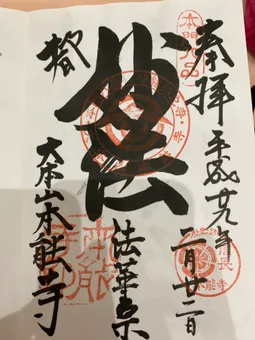 本門八品
奉拝
平成廿九年
二月廿二日
妙法
法華宗
大本山本能寺